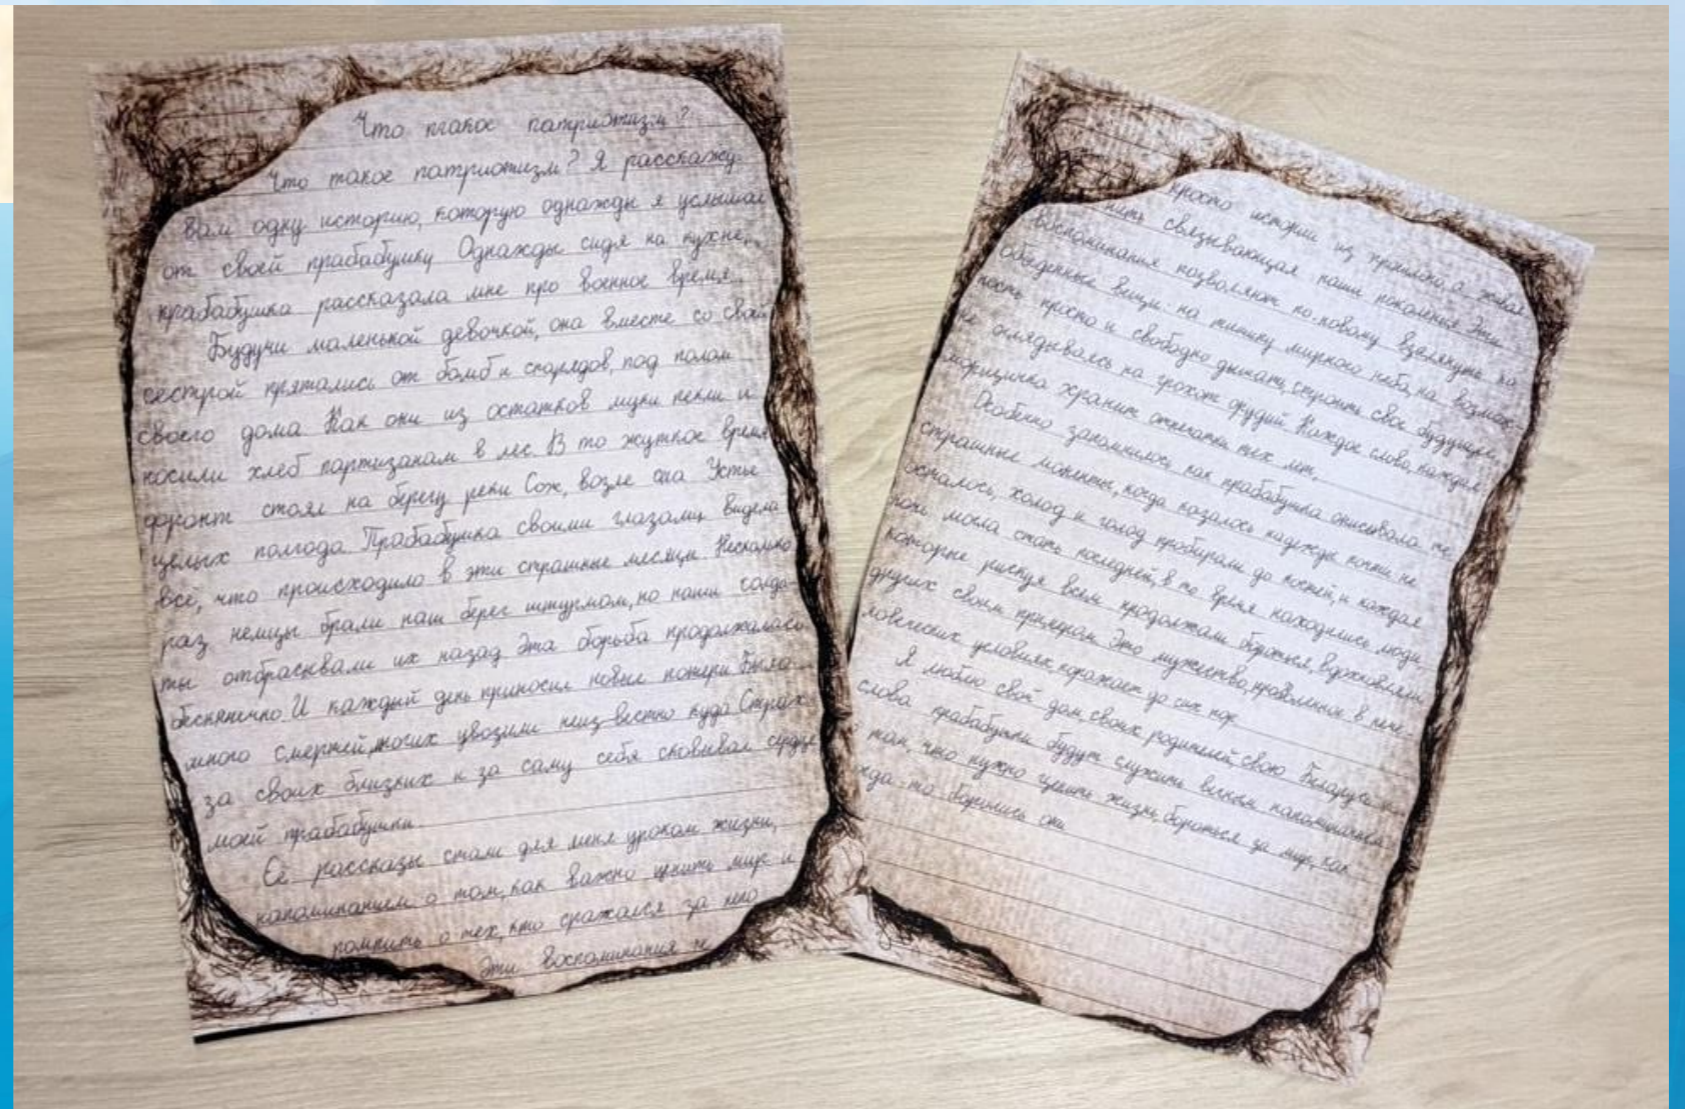 Что такое патриотизм?
Что такое патриотизм? Я расскажу
Вам одну историю, которую однажды я услышал
от своей прабабушку Однажды сидя на кухне,
прабабушка рассказала мне про военное время.
Будучи маленькой девочкой, она вместе со свой
сестрой прятались от бомб и снарядов, под полом
своего дома Как они из остатков муки пекли и
носили хлеб партизанам в лес. В то жуткое время
фронт стоял на берегу реки Сож, возле села Устье
целых полгода. Прабабушка своими глазами видела
всё, что происходило в эти страшные месяцы. Несколько
раз немцы брали наш берег штурмом, но наши солда-
ты отбрасывали их назад Эта борьба продолжалась
бесконечно. И каждый день приносил новые потери Было
много смертей, многих увозили неизвестно куда. Страх
за своих близких и за саму себя сковывал сердце
моей прабабушки.
Её рассказы стали для меня уроком жизни,
напоминанием о том, как важно ценить мир и
помнить о тех, кто сражался за него
Эти воспоминания не
просто истории из прошлого, а живая
нить связывающая наши поколения. Эти
воспоминания позволяют по-новому взглянуть на
обыденные вещи: на тишину мирного неба, на возмож-
ность просто и свободно дышать, строить свое будущее,
не оглядываясь на грохот орудий. Каждое слово, каждая
морщинка хранит отпечатки тех лет.
Особенно запомнилось, как прабабушка описывала те
страшные моменты, когда казалось надежды почти не
осталось, холод и голод пробирали до костей, и каждая
ночь могла стать последней, в то время находились люди
которые рискуя всем продолжали бороться, вдохновляли
других своим примером. Это мужество, проявленное в нече-
ловеческих условиях, поражает до сих пор
Я люблю свой дом, своих родителей, свою Беларусь и
слова прабабушки будут служить вечным напоминанием
том, что нужно ценить жизнь, бороться за мир, как
когда-то боролись они